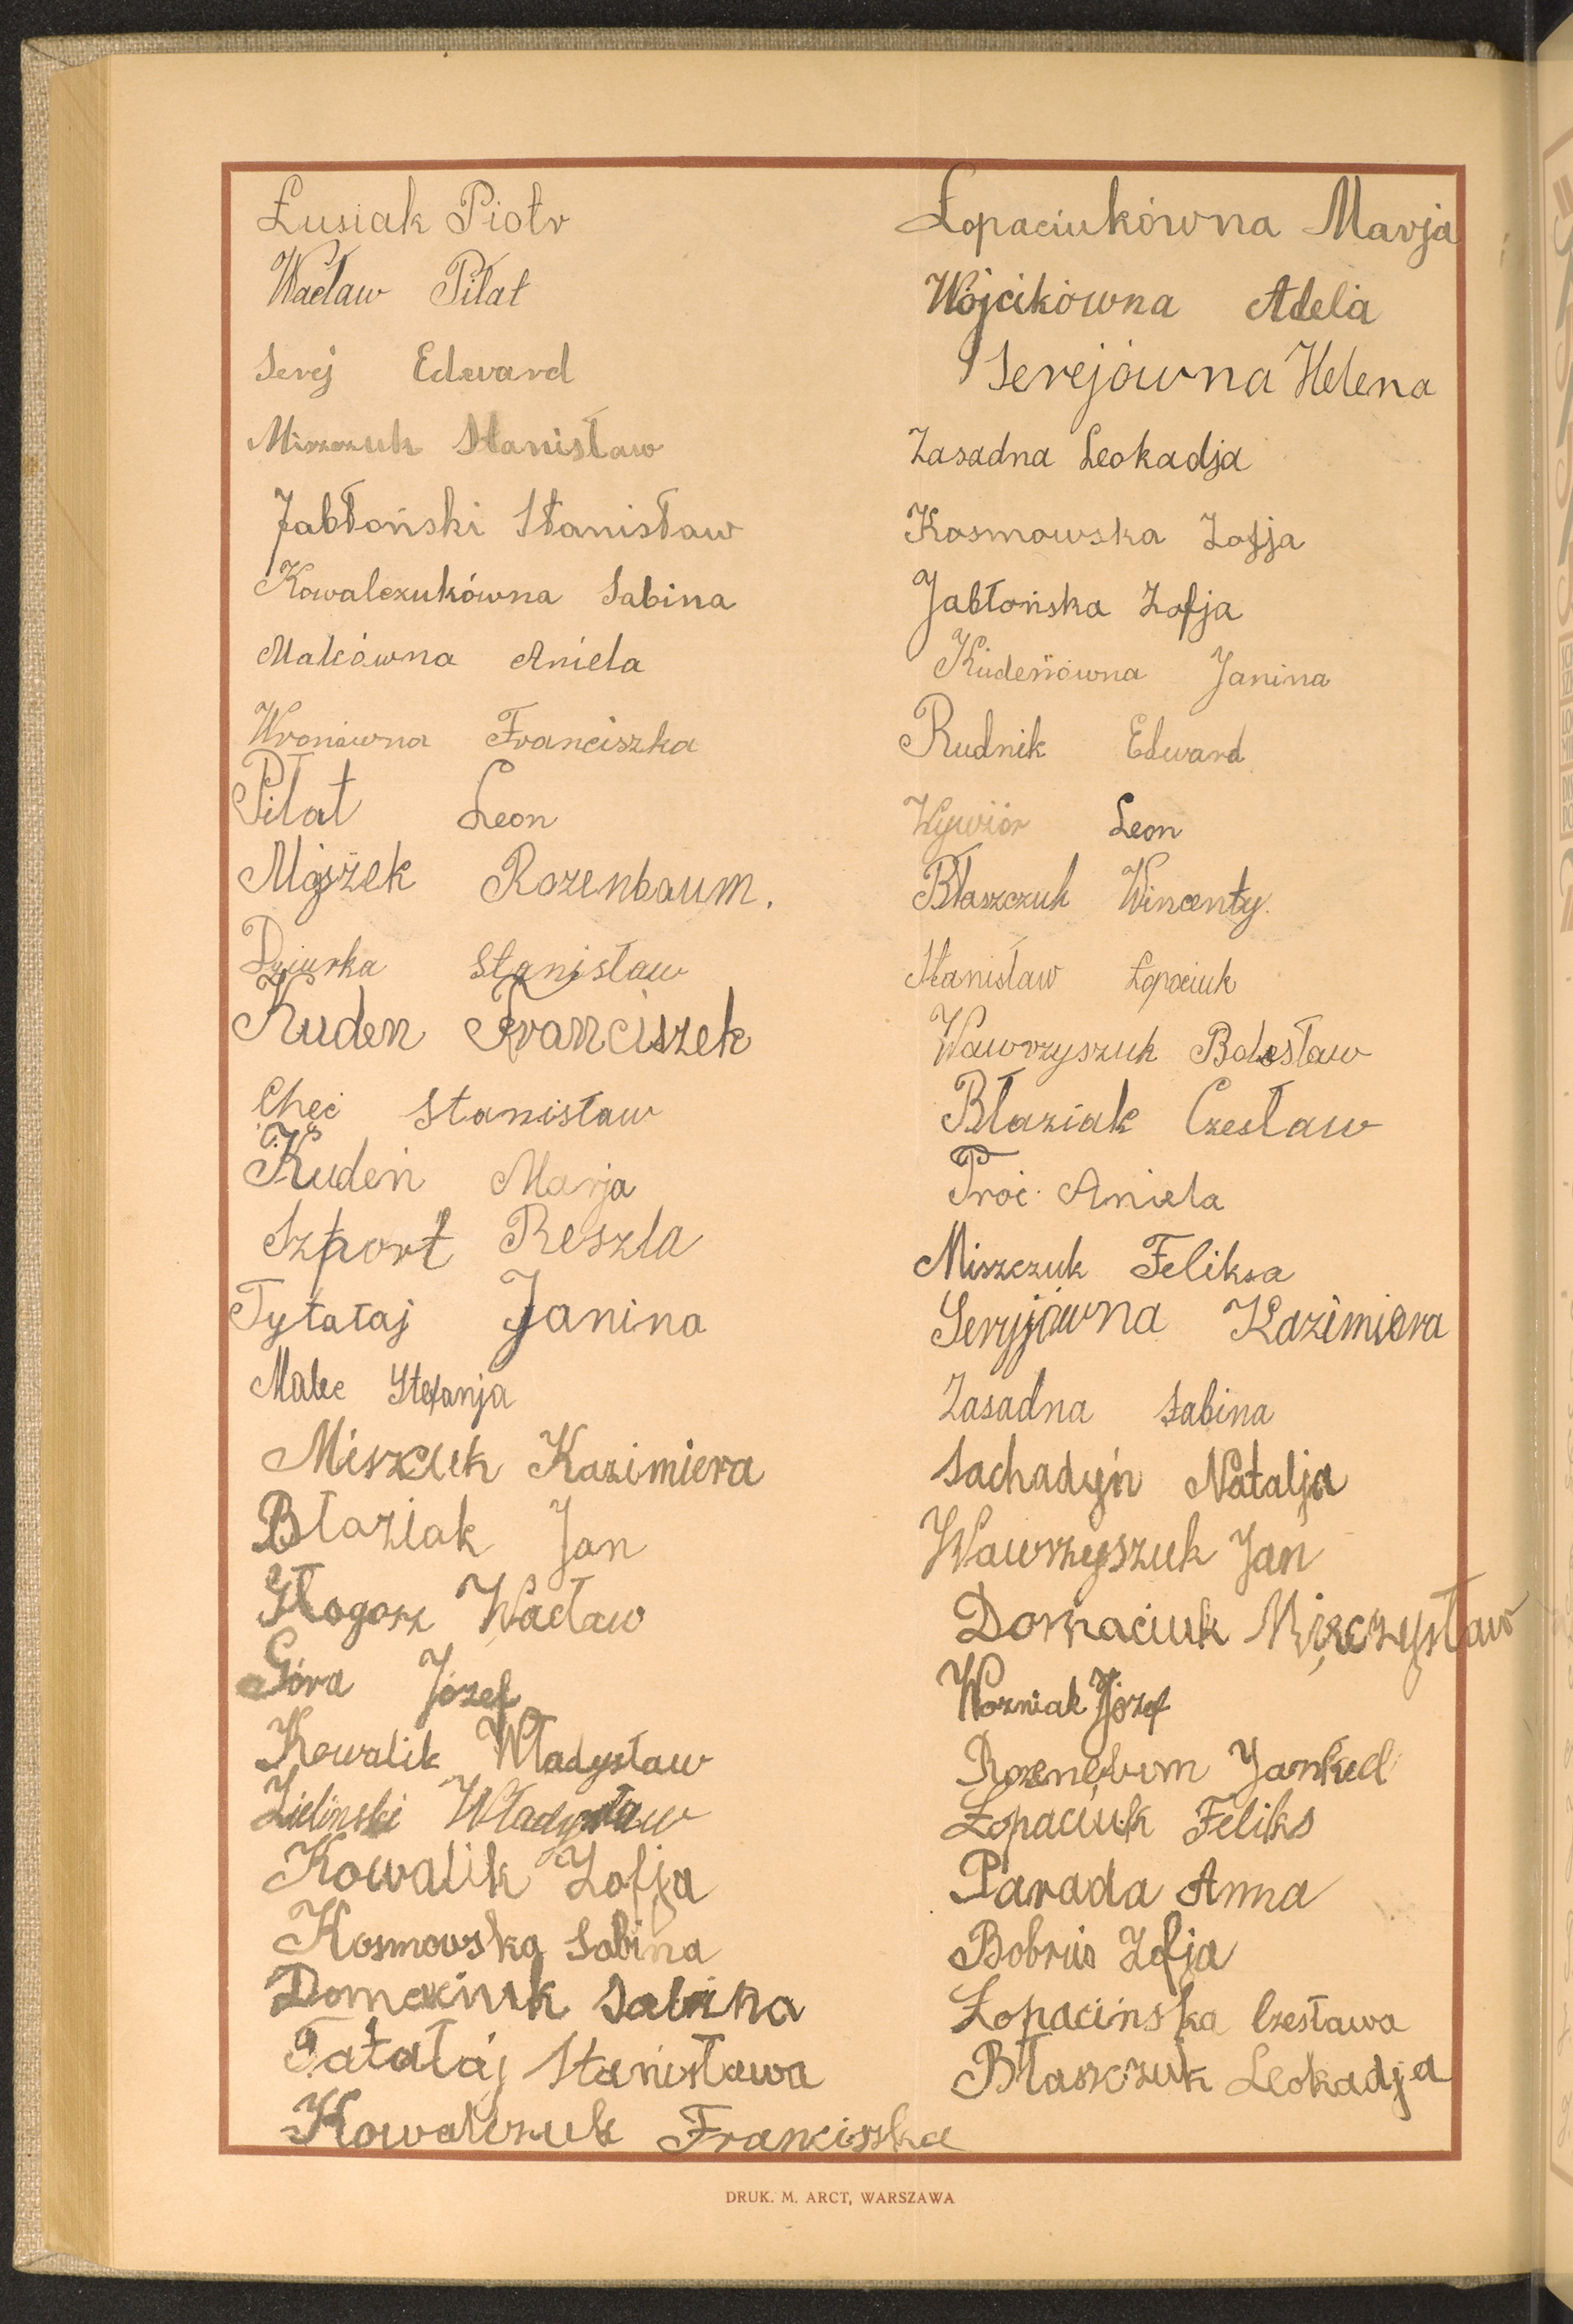 Łusiak Piotr
Wacław Piłat
Serej Edward
Miszczuk Stanisław
Jabłoński Stanisław
Kowalczukówna Sabina
Malcówna Aniela
Wronówna Franciszka
Piłat Leon
Mojżek Rozenbaum.
Dziurka Stanisław
Kuden Franciszek
Chęć Stanisław
Kudeń Marja
Szport Reszla
Tytałaj Janina
Malec Stefanja
Miszczuk Kazimiera
Błaziak Jan
Głogorz Wacław
Góra Józef
Kowalik Władysław
Zieliński Władysław
Kowalik Zofja
Kosmowska Sabina
Domaciuk Sabina
Tatałaj Stanisława
Kowalczuk Franciszka
Łopaciukówna Marja
Wójcikówna Adela
Serejówna Helena
Zasadna Leokadja
Kosmowska Zofja
Jabłońska Zofja
Kudeńówna Janina
Rudnik Edward
Wywiór Leon
Błaszczuk Wincenty.
Stanisław Łopaciuk
Wawrzyszuk Bolesław
Błaziak Czesław
Proć Aniela
Miszczuk Feliksa
Seryjówna Kazimiera
Zasadna Sabina
Sachadyń Natalja
Wawrzyszuk Jan
Domaciuk Mieczysław
Wozniak Józef
Rozenbum Jankiel
Łopaciuk Feliks
Parada Anna
Bobruś Zofja
Łopacińska Czesława
Błaszczuk Leokadja
DRUK. M. ARCT, WARSZAWA